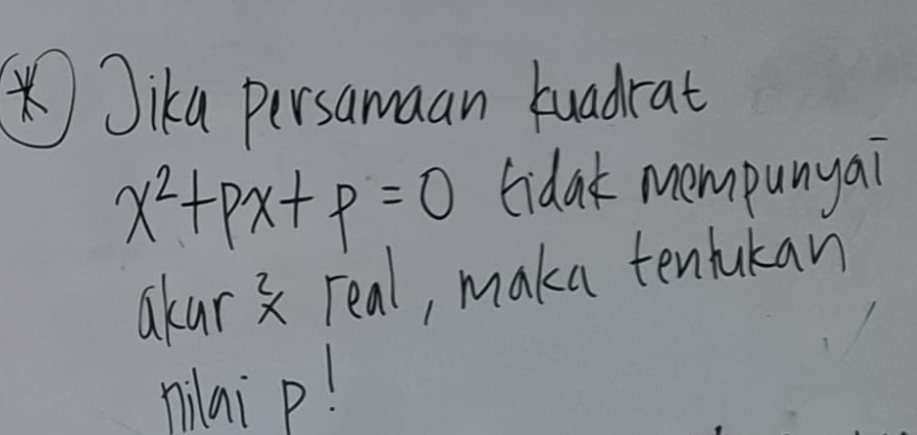 * Jika persamaan kuadrat
x²+px+p=0 tidak mempunyai
akar ²x real, maka tentukan
nilai p!